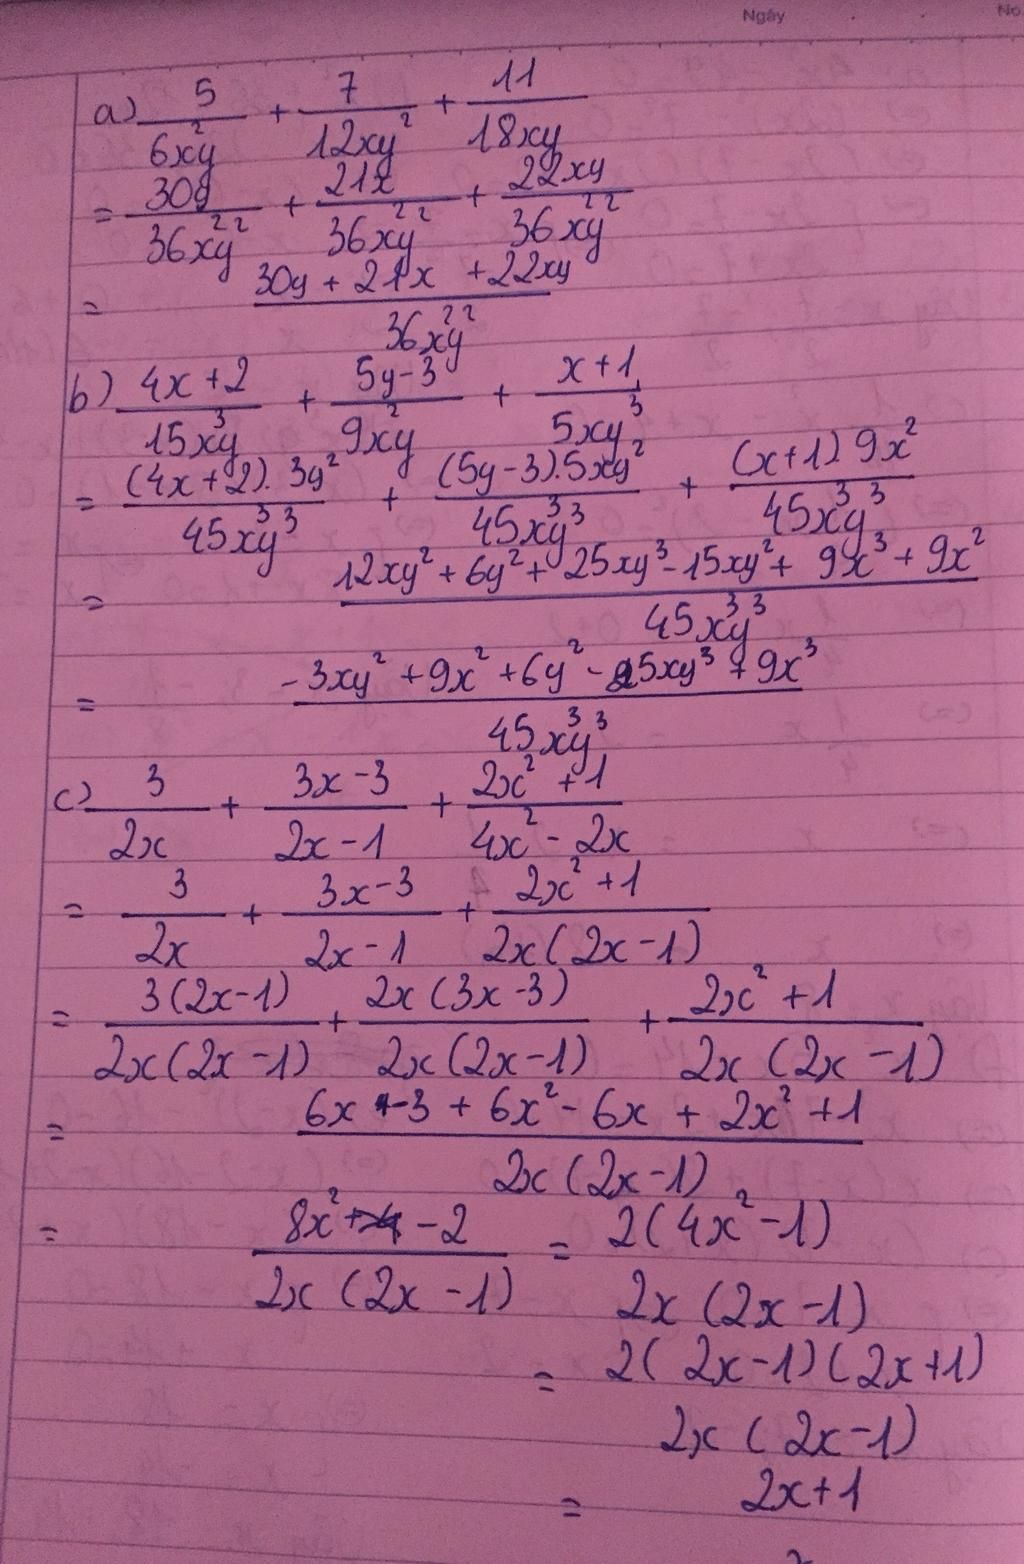 Ngày No
a) 5/(6x²y) + 7/(12xy²) + 11/(18xy)
= 30y/(36x²y²) + 21x/(36x²y²) + 22xy/(36x²y²)
= (30y + 21x + 22xy)/(36x²y²)
b) (4x+2)/(15x³y) + (5y-3)/(9x²y) + (x+1)/(5xy³)
= ((4x+2).3y²)/(45x³y³) + ((5y-3).5xy²)/(45x³y³) + ((x+1)9x²)/(45x³y³)
= (12xy² + 6y² + 25xy³ - 15xy² + 9x³ + 9x²)/(45x³y³)
= (-3xy² + 9x² + 6y² - 25xy³ + 9x³)/(45x³y³)
c) 3/(2x) + (3x-3)/(2x-1) + (2x²+1)/(4x²-2x)
= 3/(2x) + (3x-3)/(2x-1) + (2x²+1)/(2x(2x-1))
= 3(2x-1)/(2x(2x-1)) + 2x(3x-3)/(2x(2x-1)) + (2x²+1)/(2x(2x-1))
= (6x - 3 + 6x² - 6x + 2x² + 1)/(2x(2x-1))
= (8x² - 2)/(2x(2x-1)) = 2(4x²-1)/(2x(2x-1))
= 2(2x-1)(2x+1)/(2x(2x-1))
= 2x+1